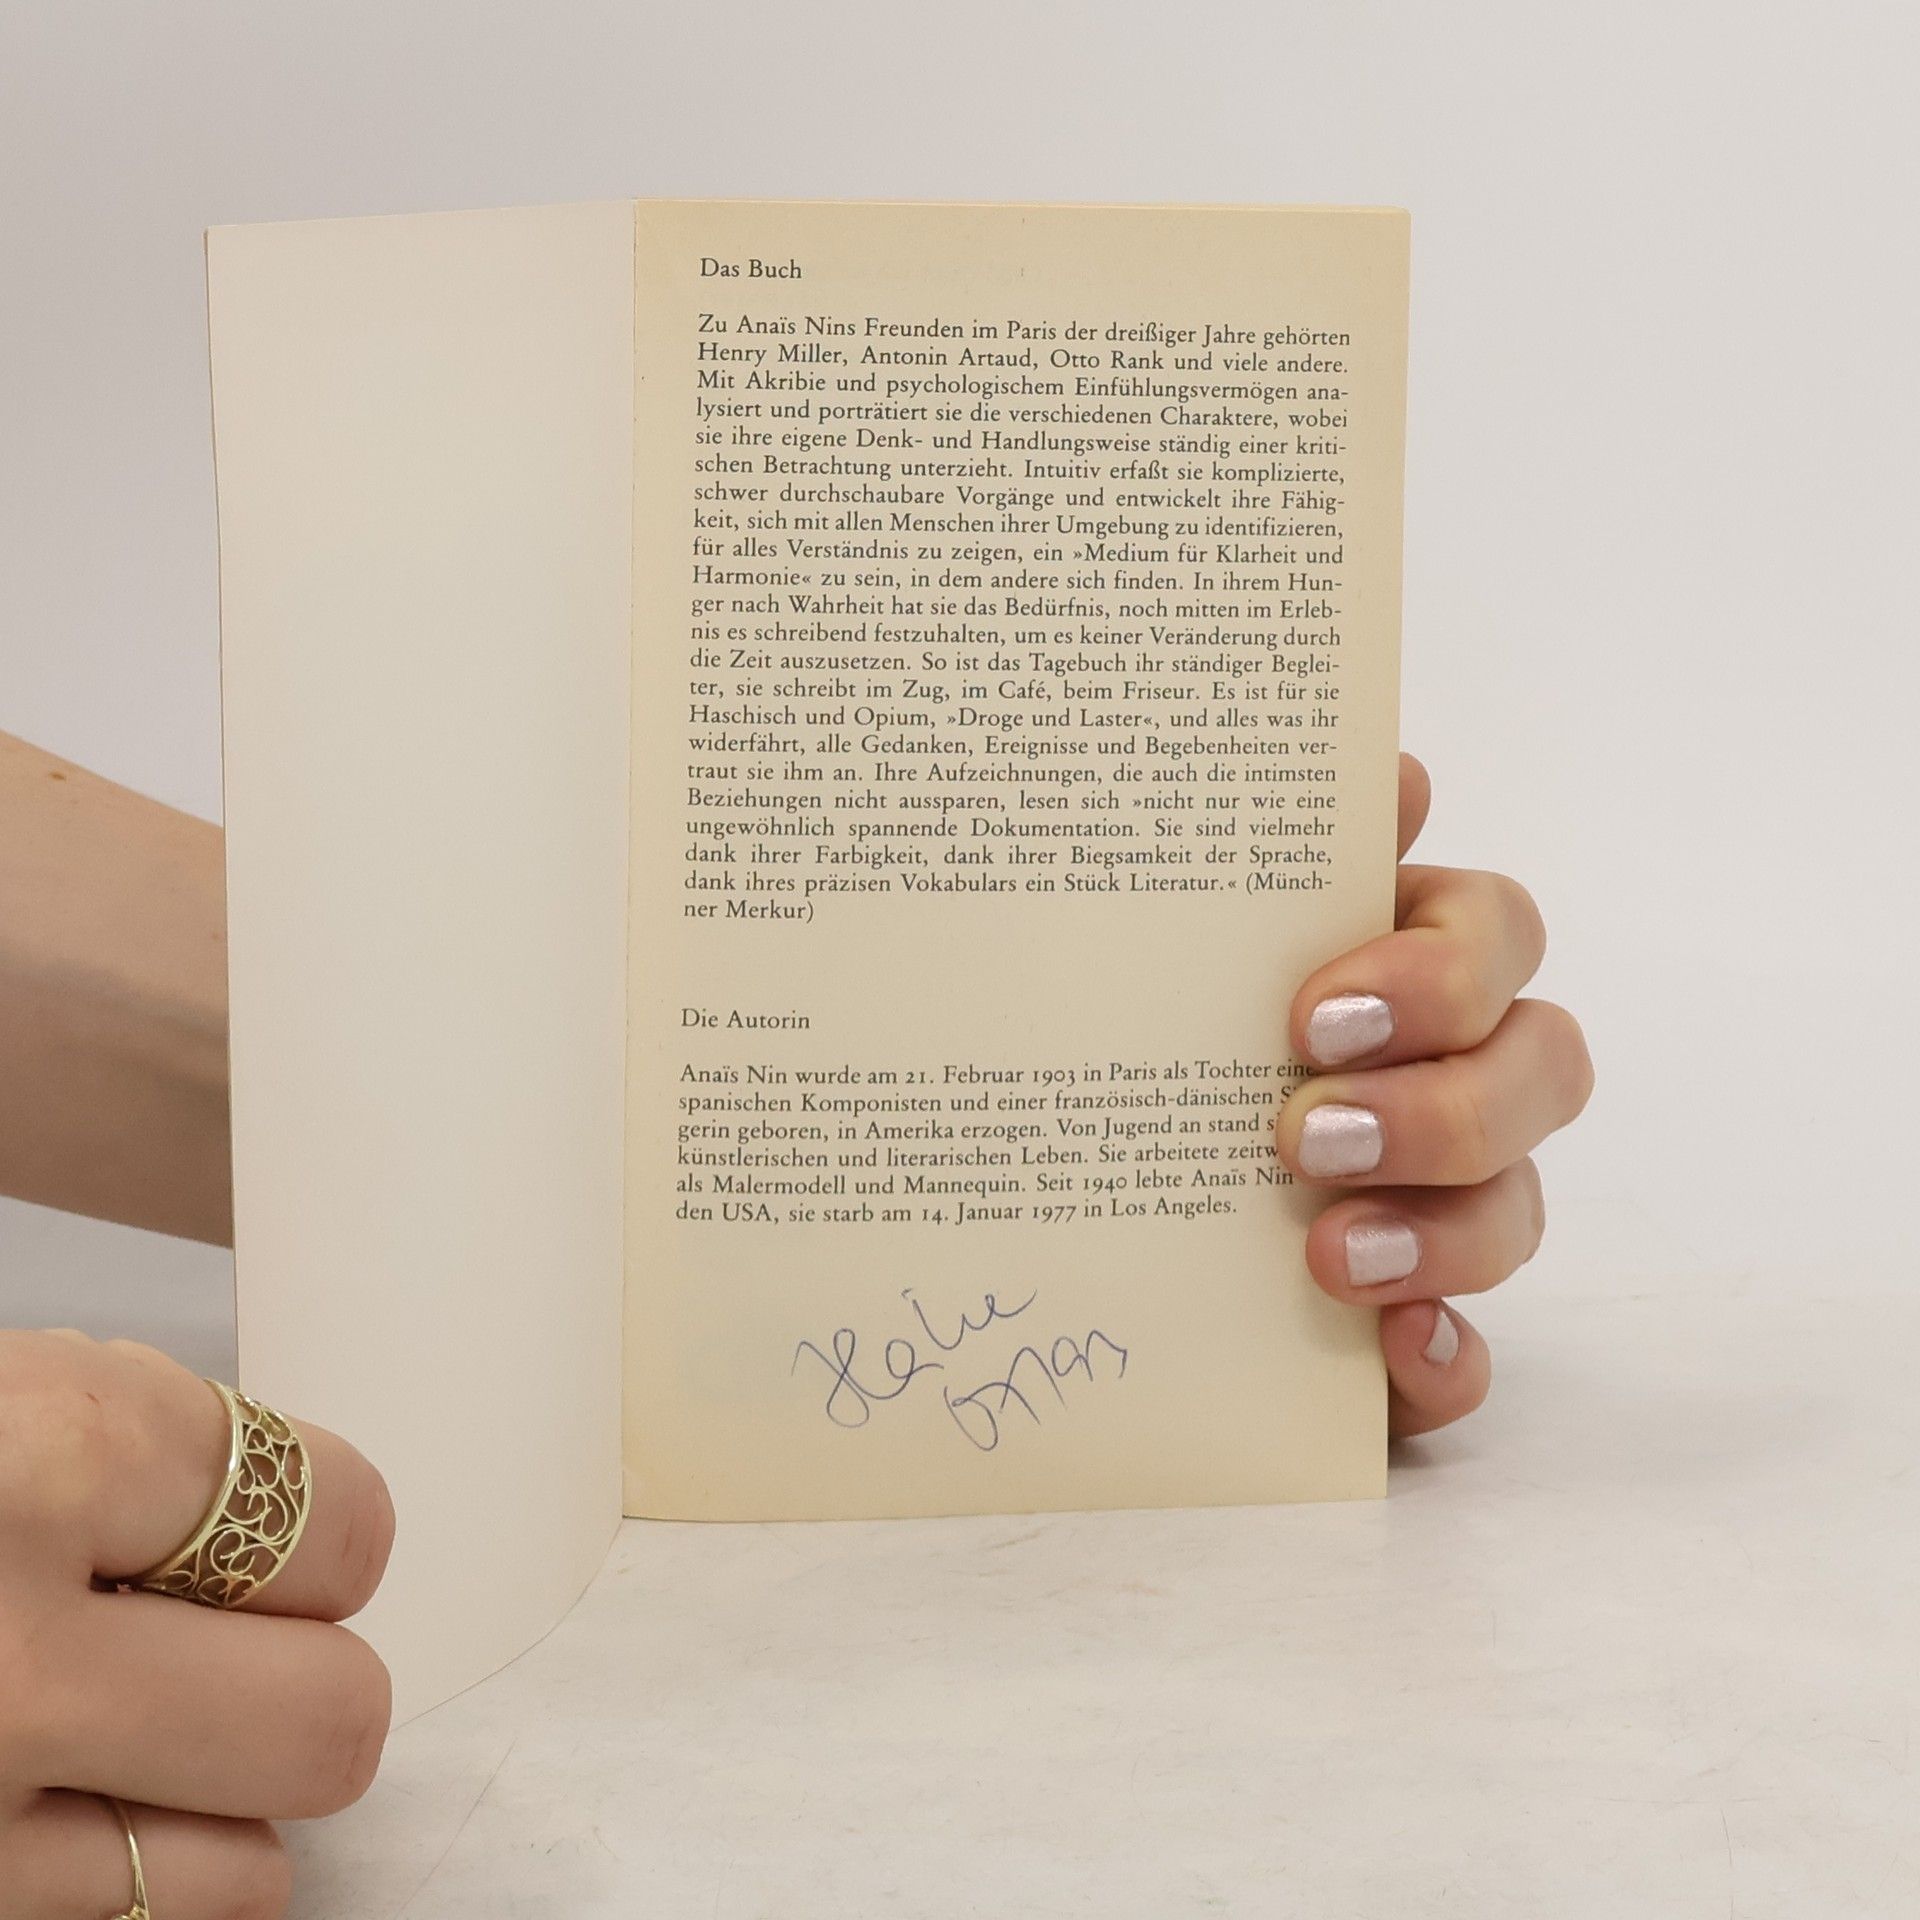 Das Buch
Zu Anaïs Nins Freunden im Paris der dreißiger Jahre gehörten
Henry Miller, Antonin Artaud, Otto Rank und viele andere.
Mit Akribie und psychologischem Einfühlungsvermögen ana-
lysiert und porträtiert sie die verschiedenen Charaktere, wobei
sie ihre eigene Denk- und Handlungsweise ständig einer kriti-
schen Betrachtung unterzieht. Intuitiv erfaßt sie komplizierte,
schwer durchschaubare Vorgänge und entwickelt ihre Fähig-
keit, sich mit allen Menschen ihrer Umgebung zu identifizieren,
für alles Verständnis zu zeigen, ein »Medium für Klarheit und
Harmonie« zu sein, in dem andere sich finden. In ihrem Hun-
ger nach Wahrheit hat sie das Bedürfnis, noch mitten im Erleb-
nis es schreibend festzuhalten, um es keiner Veränderung durch
die Zeit auszusetzen. So ist das Tagebuch ihr ständiger Beglei-
ter, sie schreibt im Zug, im Café, beim Friseur. Es ist für sie
Haschisch und Opium, »Droge und Laster«, und alles was ihr
widerfährt, alle Gedanken, Ereignisse und Begebenheiten ver-
traut sie ihm an. Ihre Aufzeichnungen, die auch die intimsten
Beziehungen nicht aussparen, lesen sich »nicht nur wie eine
ungewöhnlich spannende Dokumentation. Sie sind vielmehr
dank ihrer Farbigkeit, dank ihrer Biegsamkeit der Sprache,
dank ihres präzisen Vokabulars ein Stück Literatur.« (Münch-
ner Merkur)
Die Autorin
Anaïs Nin wurde am 21. Februar 1903 in Paris als Tochter
spanischen Komponisten und einer französisch-dänischen
gerin geboren, in Amerika erzogen. Von Jugend an stand
künstlerischen und literarischen Leben. Sie arbeitete
als Malermodell und Mannequin. Seit 1940 lebte Anaïs Nin
den USA, sie starb am 14. Januar 1977 in Los Angeles.